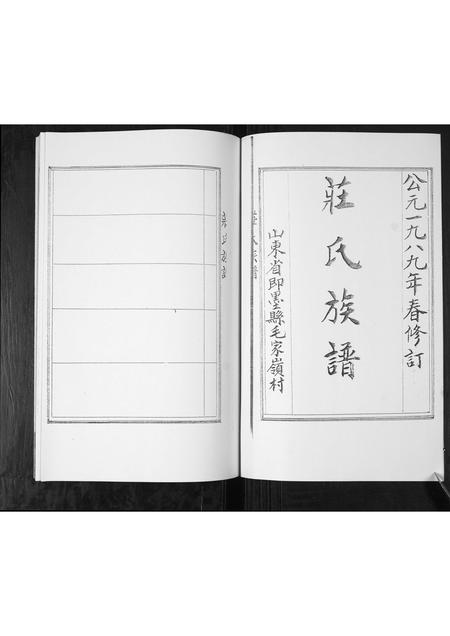 公元一九八九年春修訂
莊氏族譜
山東省即墨縣毛家嶺村
莊氏族譜